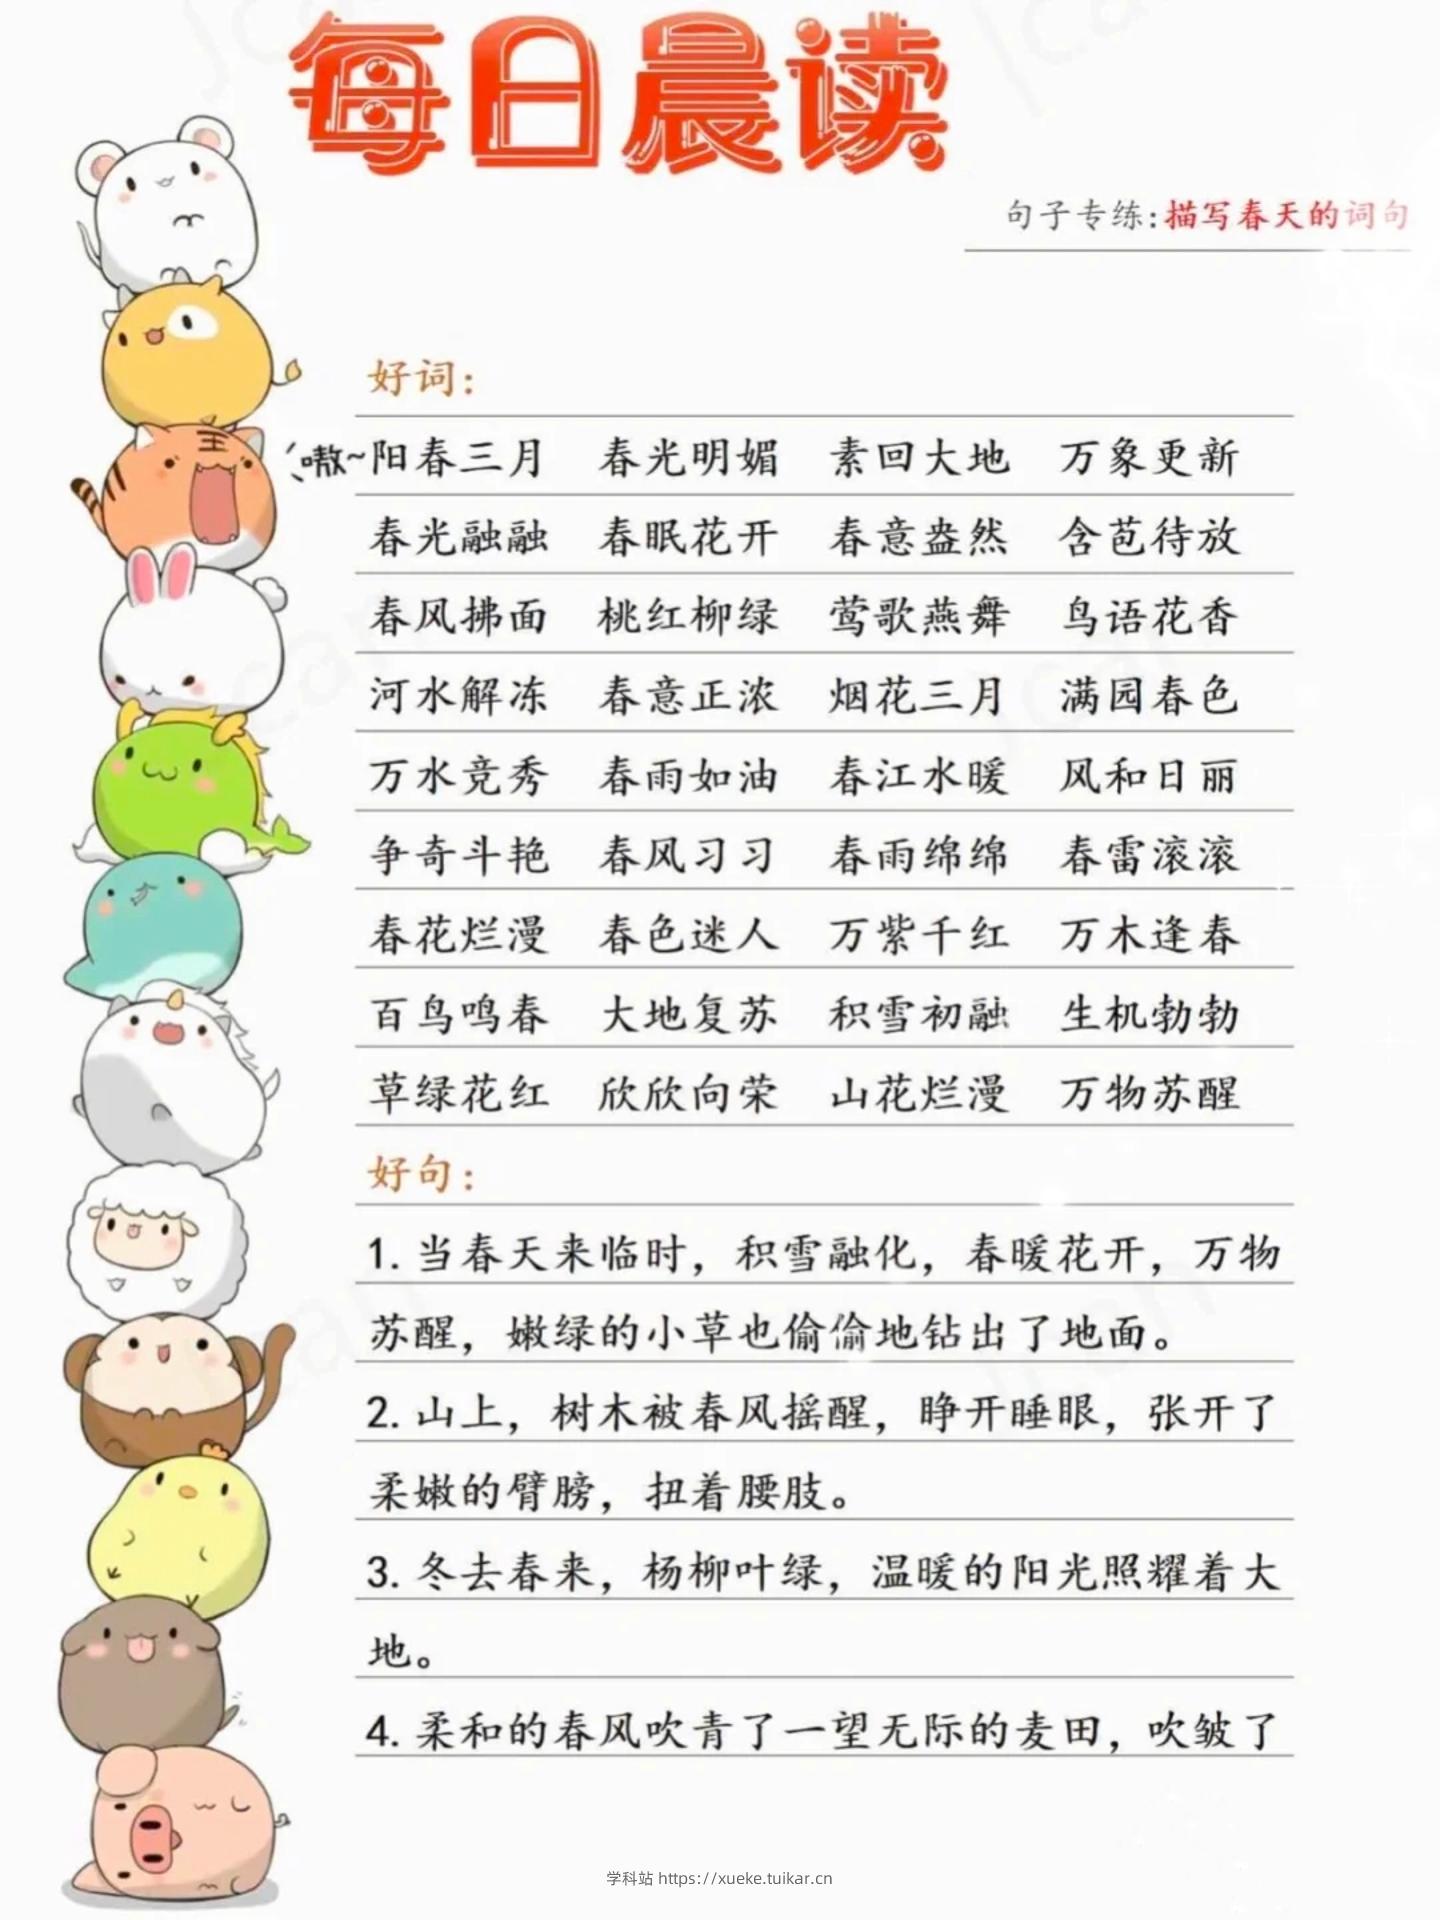 每日晨读
句子专练:描写春天的词句
好词:
嗷~
阳春三月 春光明媚 素回大地 万象更新
春光融融 春眠花开 春意盎然 含苞待放
春风拂面 桃红柳绿 莺歌燕舞 鸟语花香
河水解冻 春意正浓 烟花三月 满园春色
万水竞秀 春雨如油 春江水暖 风和日丽
争奇斗艳 春风习习 春雨绵绵 春雷滚滚
春花烂漫 春色迷人 万紫千红 万木逢春
百鸟鸣春 大地复苏 积雪初融 生机勃勃
草绿花红 欣欣向荣 山花烂漫 万物苏醒
好句:
1. 当春天来临时，积雪融化，春暖花开，万物
苏醒，嫩绿的小草也偷偷地钻出了地面。
2. 山上，树木被春风摇醒，睁开睡眼，张开了
柔嫩的臂膀，扭着腰肢。
3. 冬去春来，杨柳叶绿，温暖的阳光照耀着大
地。
4. 柔和的春风吹青了一望无际的麦田，吹皱了
学科站 https://xueke.tuikar.cn